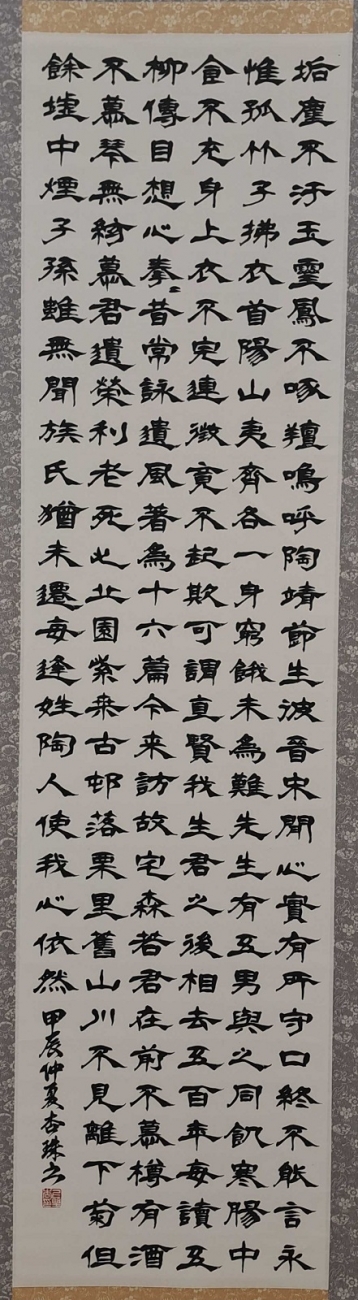 垢塵不汙玉靈鳳不啄羶嗚呼陶靖節生彼晉宋間心實有所守口終不能言永
惟孤竹子拂衣首陽山夷齊各一身窮餓未為難先生有五男與之同飢寒腸中
食不充身上衣不完連徵竟不起斯可謂真賢我生君之後相去五百年每讀五
柳傳目想心拳〻昔常詠遺風著為十六篇今来訪故宅森若君在前不慕樽有酒
不慕琴無絃慕君遺榮利老死此丘園柴桒古邨落栗里舊山川不見離下菊但
餘墟中煙子孫雖無聞族氏猶未遷每逢姓陶人使我心依然 甲辰仲夏杏珠书